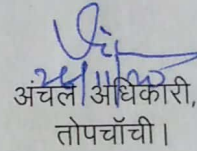 अंचल अधिकारी,
तोपचॉंची।